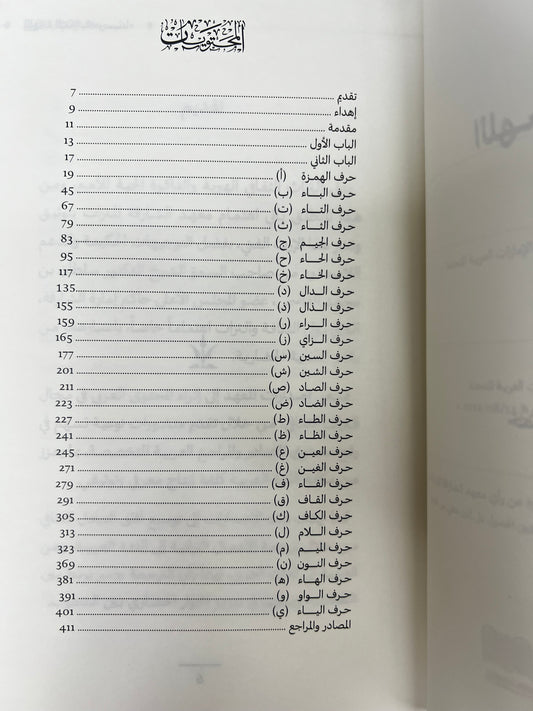 المحتويات
تقديم 7
إهداء 9
مقدمة 11
الباب الأول 13
الباب الثاني 17
حرف الهمزة (أ) 19
حرف الباء (ب) 45
حرف التاء (ت) 67
حرف الثاء (ث) 79
حرف الجيم (ج) 83
حرف الحاء (ح) 95
حرف الخاء (خ) 117
حرف الدال (د) 135
حرف الذال (ذ) 155
حرف الراء (ر) 159
حرف الزاي (ز) 165
حرف السين (س) 177
حرف الشين (ش) 201
حرف الصاد (ص) 211
حرف الضاد (ض) 223
حرف الطاء (ط) 227
حرف الظاء (ظ) 241
حرف العين (ع) 245
حرف الغين (غ) 271
حرف الفاء (ف) 279
حرف القاف (ق) 291
حرف الكاف (ك) 305
حرف اللام (ل) 313
حرف الميم (م) 323
حرف النون (ن) 369
حرف الهاء (هـ) 381
حرف الواو (و) 391
حرف الياء (ي) 401
المصادر والمراجع 411